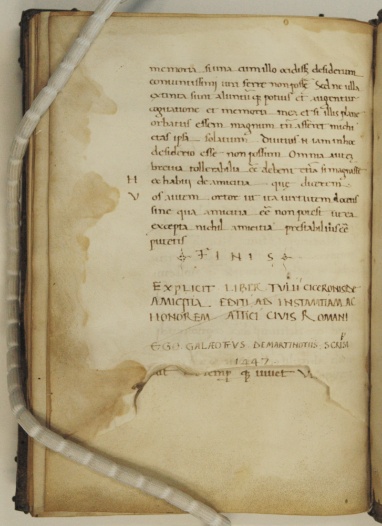 memoria si una cum illo occidisset desiderium
coniunctissimi viri ferre non posse. Sed nec illa
extincta sunt alunturque potius et augentur
cogitatione et memoria mea et si illis plane
orbatus essem magnum tamen afferret michi
etas ipsa solatium Diutius iam in hoc
desiderio esse non possum Omnia autem
brevia tollerabilia esse debent etiam si magna sunt
Hec habui de amicitia que dicerem
Vos autem ortor ut ita virtutem locetis
sine qua amicitia esse non potest ut ea
excepta nichil amicitia prestabilius esse
putetis
FINIS
EXPLICIT LIBER TVLII CICERONIS DE
AMICITIA EDITI AD INSTANTIAM AC
HONOREM ATTICI CIVIS ROMANI
EGO GALAEOTTVS DE MARTINOTIIS SCRIPSI
1447
semper vivet